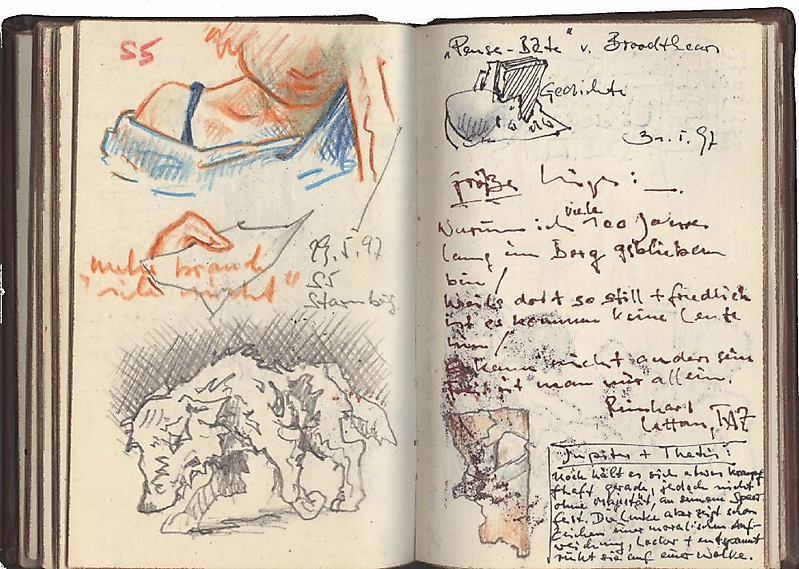 S5
29.5.97
S5
Starnbg.
"mehr brauch
ich nicht"
"Pense-Bête" v. Broodthears
Gedichte
31.5.97
größe Lüge: —.
Warum ich viele 100 Jahre
lang im Berg geblieben
bin /
Weils dort so still + friedlich
ist es kommen keine Leute
hin /
kann nicht anders sein
ist man nur allein.
Reinhard
TAZ
"Jupiter + Thetis":
Noch hält er sich etwas krampf
haft, gerade jedoch nicht
ohne an seinem Speer
fest. Die Linke aber zeigt schon
Zeichen einer moralischen Auf-
weichung, locker + entspannt
ruht sie auf einer Wolke.